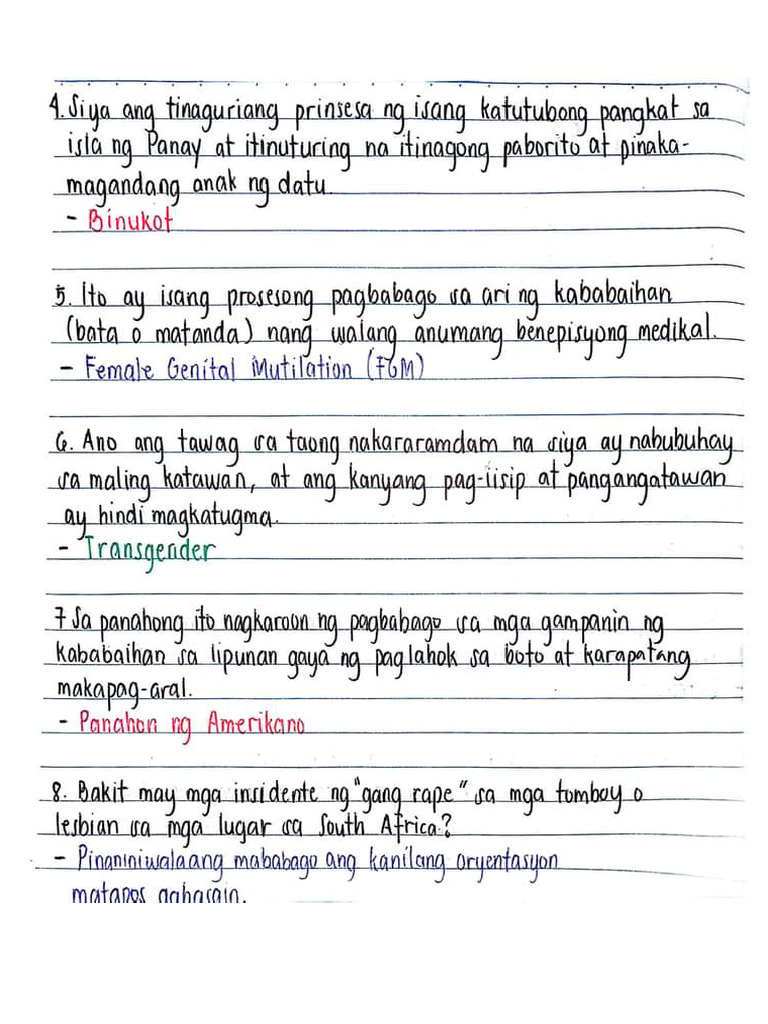 4. Siya ang tinaguriang prinsesa ng isang katutubong pangkat sa
isla ng Panay at itinuturing na itinagong paborito at pinaka-
magandang anak ng datu
- Binukot
5. Ito ay isang prosesong pagbabago sa ari ng kababaihan
(bata o matanda) nang walang anumang benepisyong medikal.
- Female Genital Mutilation (FGM)
6. Ano ang tawag sa taong nakararamdam na siya ay nabubuhay
sa maling katawan, at ang kanyang pag-iisip at pangangatawan
ay hindi magkatugma.
- Transgender
7 Sa panahong ito nagkaroon ng pagbabago sa mga gampanin ng
kababaihan sa lipunan gaya ng paglahok sa boto at karapatang
makapag-aral.
- Panahon ng Amerikano
8. Bakit may mga insidente ng "gang rape" sa mga tomboy o
lesbian sa mga lugar sa South Africa?
- Pinaniniwalaang mababago ang kanilang oryentasyon
matapos gahasain.